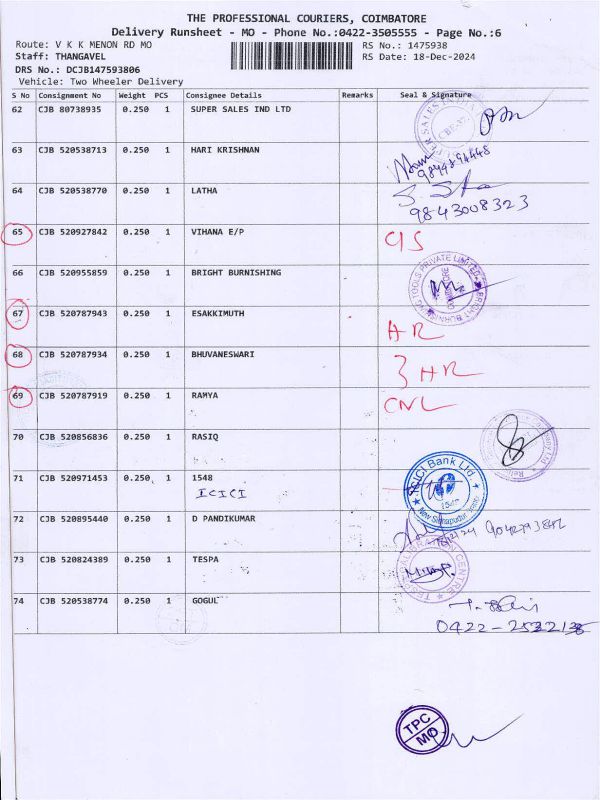 THE PROFESSIONAL COURIERS, COIMBATORE
Delivery Runsheet - MO - Phone No.:0422-3505555 - Page No.:6
Route: V K K MENON RD MO RS No.: 1475938
Staff: THANGAVEL RS Date: 18-Dec-2024
DRS No.: DCJB147593806
Vehicle: Two Wheeler Delivery
S No Consignment No Weight PCS Consignee Details Remarks Seal & Signature
62 CJB 80738935 0.250 1 SUPER SALES IND LTD
63 CJB 520538713 0.250 1 HARI KRISHNAN
9844894448
64 CJB 520538770 0.250 1 LATHA
9843008323
65 CJB 520927842 0.250 1 VIHANA E/P
66 CJB 520955859 0.250 1 BRIGHT BURNISHING
BRIGHT BURNISHING TOOLS PRIVATE LIMITED
COIMBATORE
67 CJB 520787943 0.250 1 ESAKKIMUTH HR
68 CJB 520787934 0.250 1 BHUVANESWARI HR
69 CJB 520787919 0.250 1 RAMYA CNL
70 CJB 520856836 0.250 1 RASIQ
71 CJB 520971453 0.250 1 1548
ICICI
ICICI Bank Ltd
72 CJB 520895440 0.250 1 D PANDIKUMAR
73 CJB 520824389 0.250 1 TESPA
74 CJB 520538774 0.250 1 GOGUL
TPC
MO